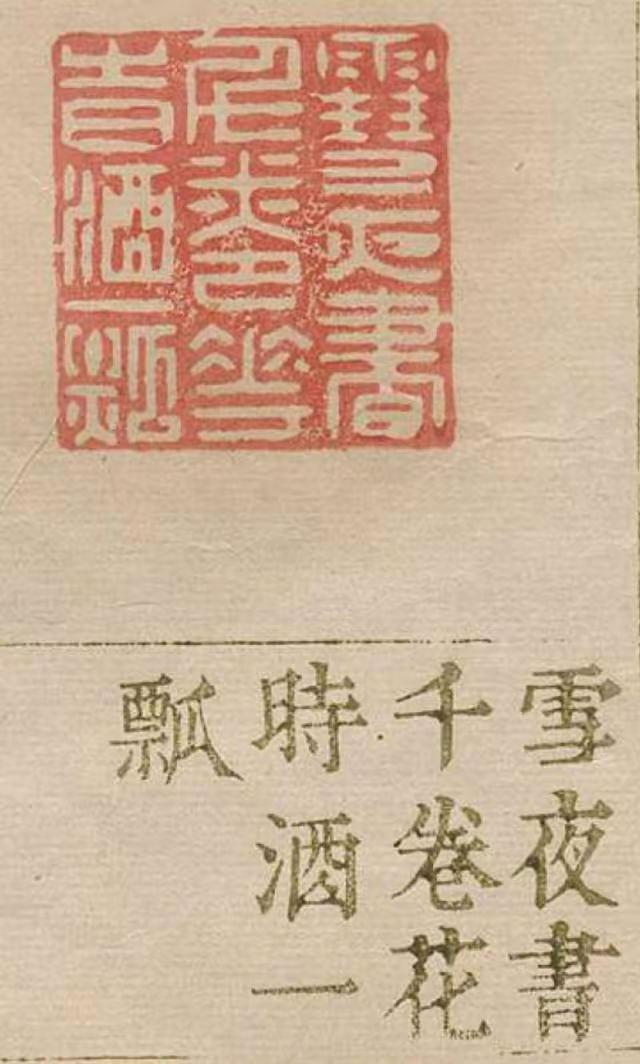 雪夜書
千卷花
時酒一瓢
雪夜書
千卷花
時酒一
瓢